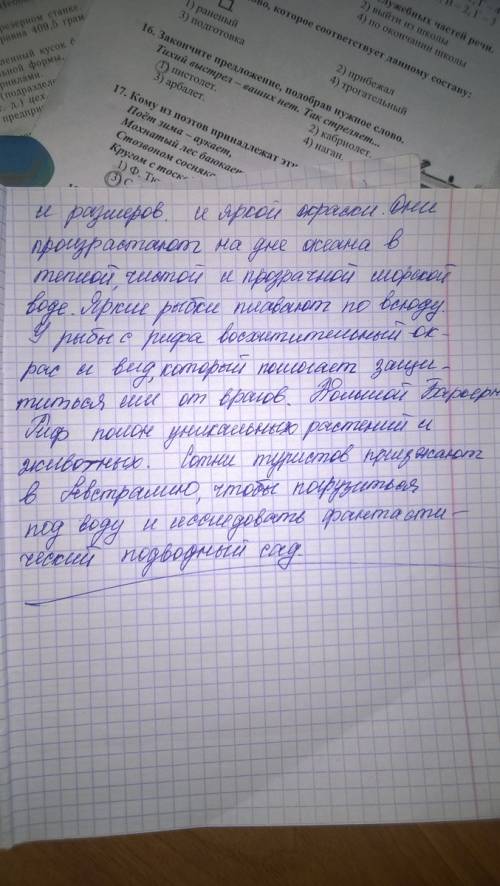 резерном станке.
равна 409,5 грам
ленный кусок с
льной формы,
(подразделе
т. д.) цех
предпри
ово, которое соответствует данному составу:
1) раненый
3) подготовка
2) выйти из школы
4) по окончании школы
служебных частей речи.
16. Закончите предложение, подобрав нужное слово.
Тихий выстрел – ваших нет. Так стреляет...
1) пистолет.
3) арбалет.
2) прибежал
4) трогательный
17. Кому из поэтов принадлежат эти
Поёт зима – аукает,
Мохнатый лес баюкает
Стозвоном сосняка.
Кругом с тоской
2) кабриолет.
4) наган.
1) Ф. Тю
3) С.
и размеров. и яркой окраски. Они
произрастают на дне океана в
теплой, чистой и прозрачной морской
воде. Яркие рыбки плавают по всюду.
У рыбы с рифа восхитительный ок-
рас и вид, который помогает защи-
титься им от врагов. Большой Барьерн
Риф полон уникальных растений и
животных. Сотни туристов приезжают
в Австралию, чтобы погрузиться
под воду и исследовать фантасти-
ческий подводный сад.